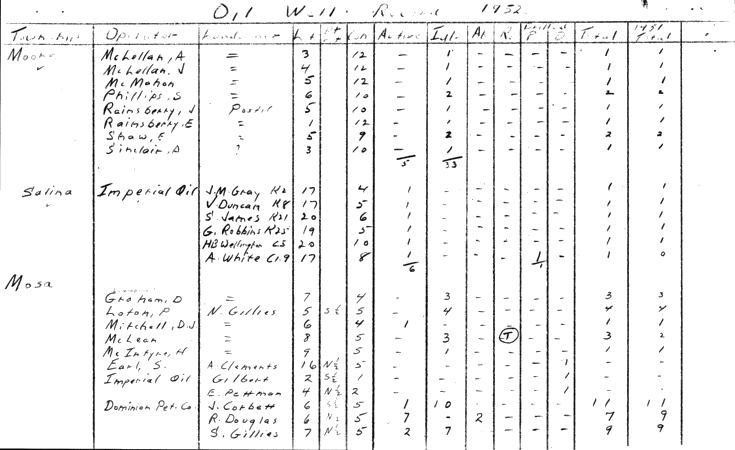 Oil Well Record 1952.
Township Operator Landowner Lot Con Active Idle Ab R. Drilled P D Total 1951 Total
Moore McLellan, A = 3 12 – 1 – – – – 1 1
McLellan, J = 4 12 – 1 – – – – 1 1
McMahon = 5 12 – 1 – – – – 1 1
Phillips, S = 6 10 – 2 – – – – 2 2
Rainsberry, J 5 10 – 1 – – – – 1 1
Rainsberry, E = 1 12 – 1 – – – – 1 1
Shaw, E = 5 9 – 2 – – – – 2 2
Sinclair, D ? 3 10 – 1 – – – – 1 1
5 33
Salina Imperial Oil J.M Gray K2 17 4 1 – – – – – 1 1
J. Duncan K8 17 5 1 – – – – – 1 1
S. James K21 20 6 1 – – – – – 1 1
G. Robbins K25 19 5 1 – – – – – 1 1
HB Wellington C5 20 10 1 – – – – – 1 1
A. White C19 17 8 1 – – – 1 – 1 0
6 1
Mosa
Graham, D = 7 4 – 3 – – – – 3 3
Loton, P N. Gillies 5 S½ 5 – 4 – – – – 4 4
Mitchell, D.J = 6 4 1 – – – – – 1 1
McLean = 8 5 – 3 – T – – 3 2
McIntyre, H = 9 5 – 1 – – – – 1 1
Earl, S. A. Clements 16 N½ 5 – – – – – 1 – –
Imperial Oil Gilbert 2 S½ 1 – – – – – 1 – –
E. Pettman 4 N½ 2 – – – – – 1 – –
Dominion Pet. Co. J. Corbett 6 S½ 5 1 10 – – – – 11 11
R. Douglas 6 N½ 5 7 – 2 – – – 7 9
S. Gillies 7 N½ 5 2 7 – – – – 9 9